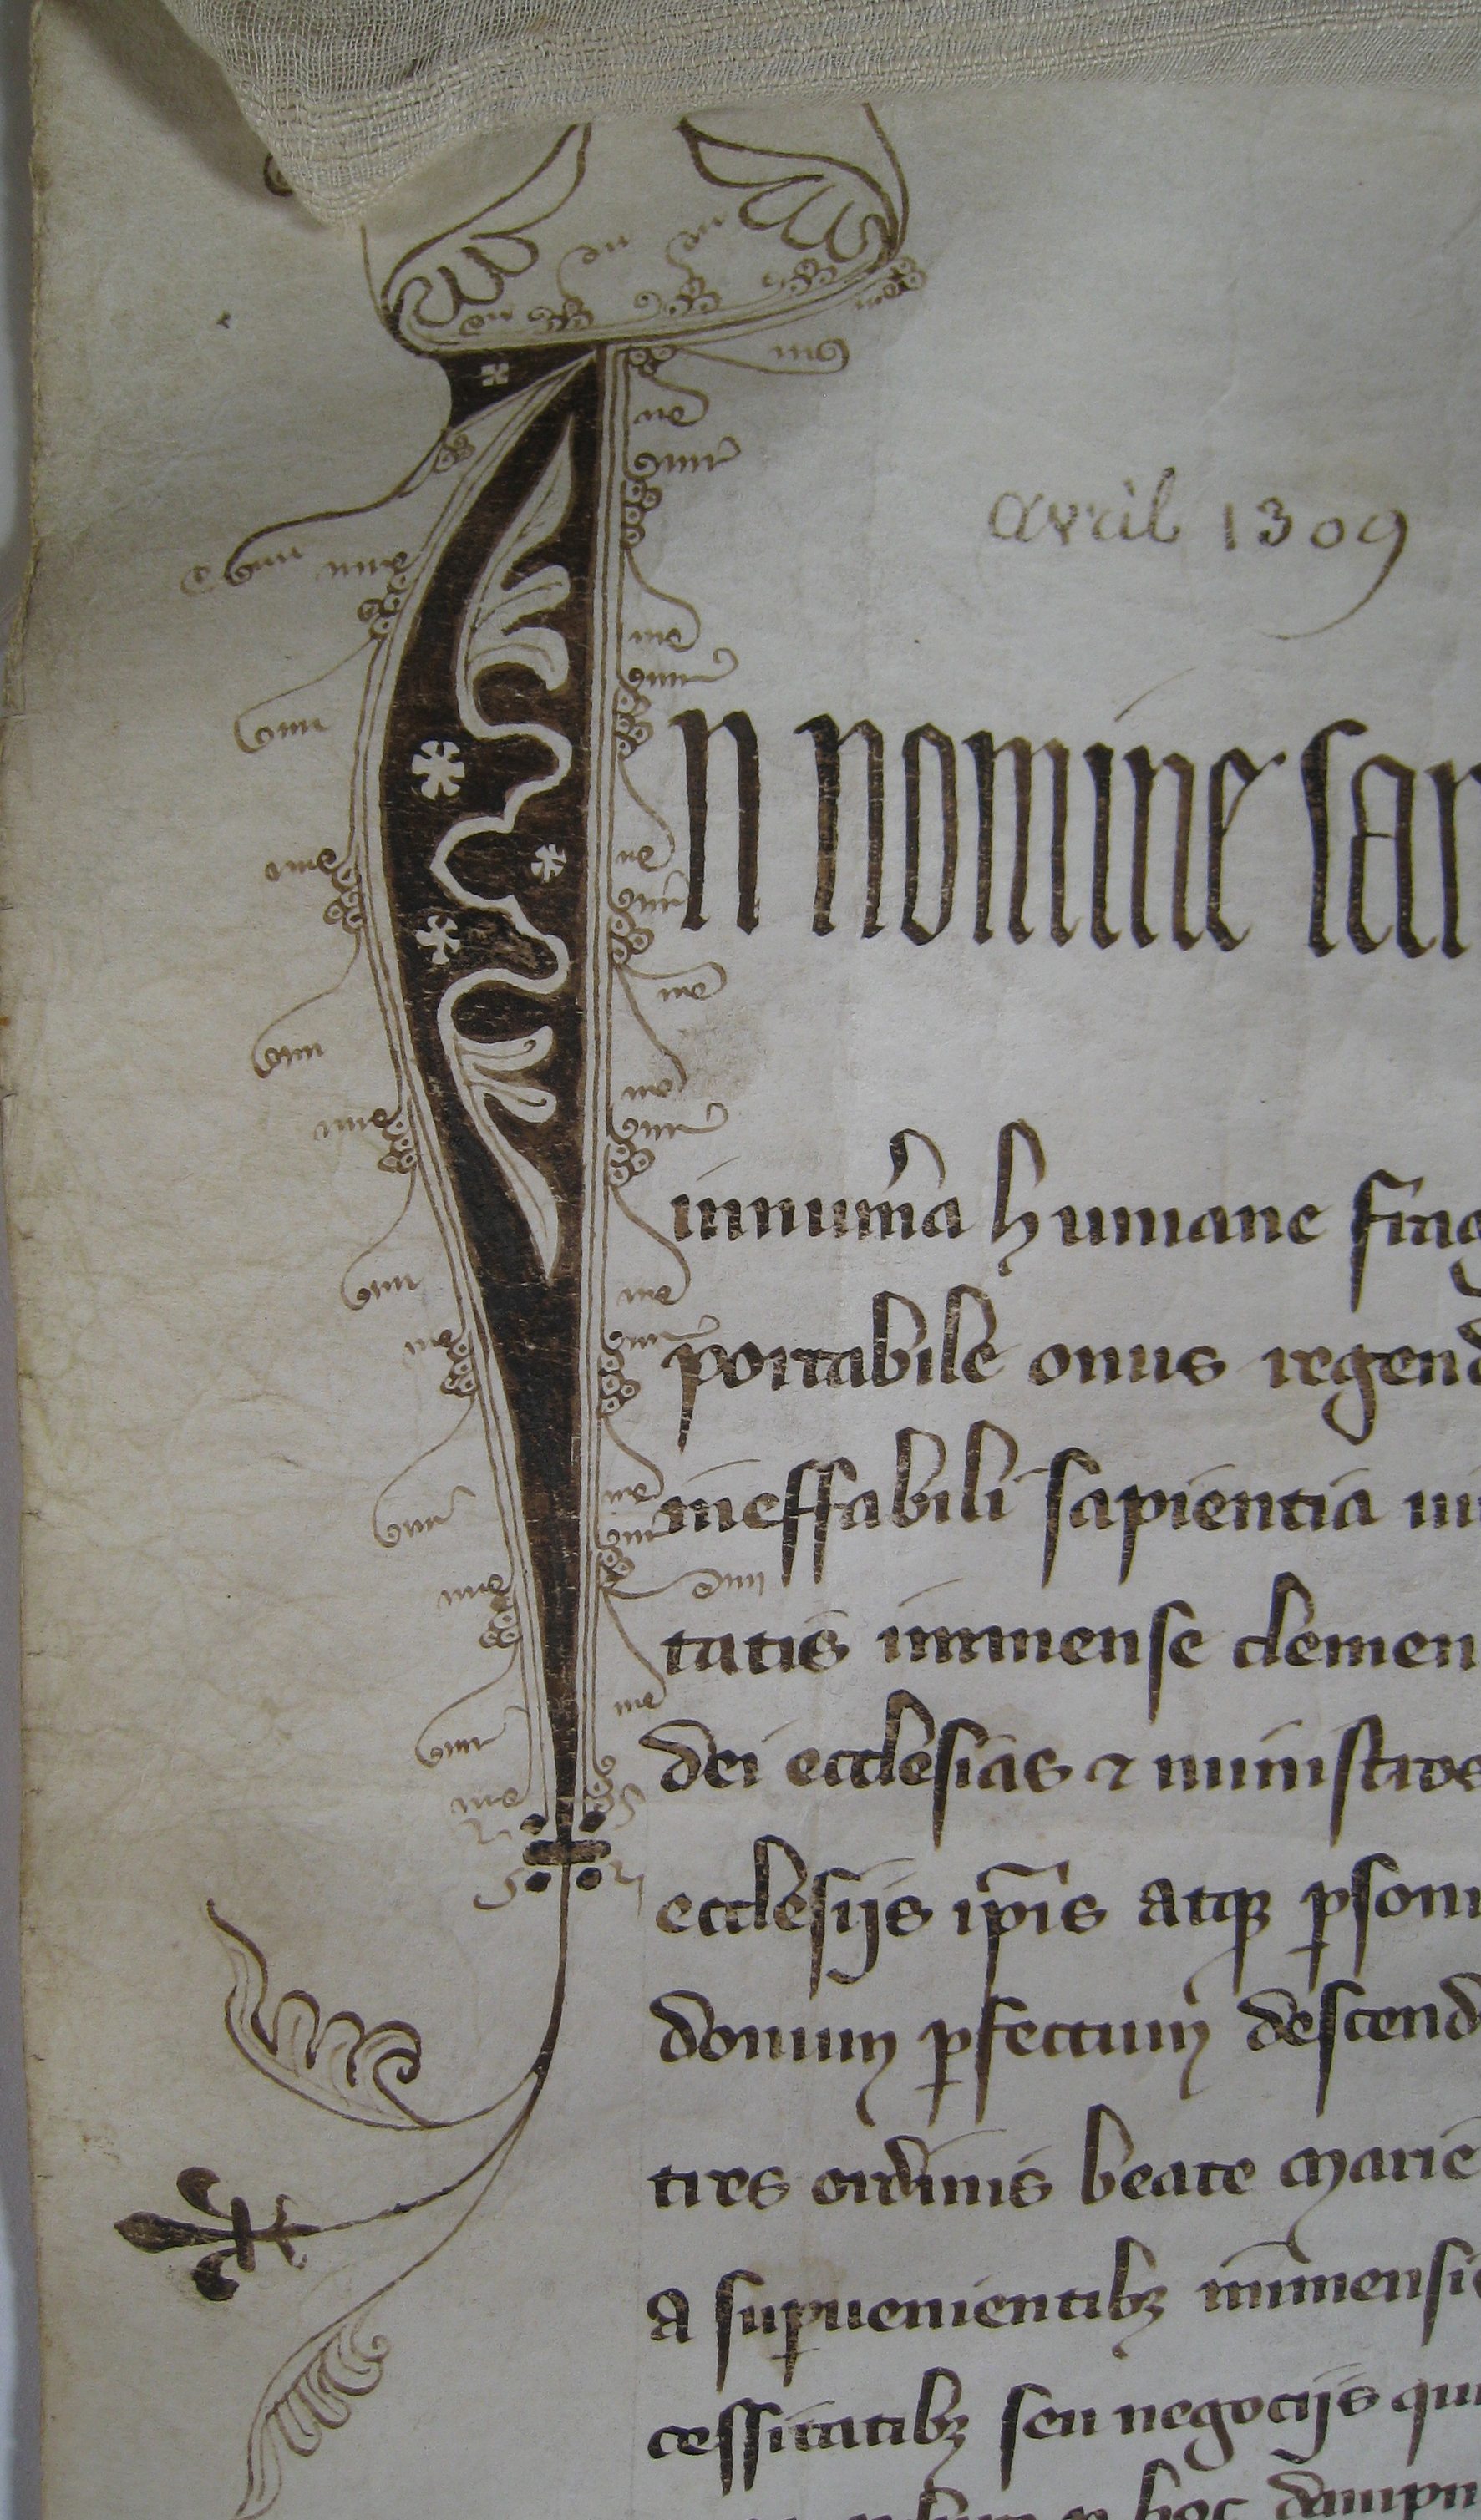 avril 1309
In nomine san
innum̄a humane frag
portabile onus regend
ineffabili sapientia
tatis immense clemen
dei ecclesias ⁊ ministros
ecclesijs ip̄is atqꝫ ꝑsoni
donum ꝑfectum descend
tres ordinis beate marie
a suꝑuenientibꝫ immensi
cessitatibꝫ seu negocijs qui
hoc dampn